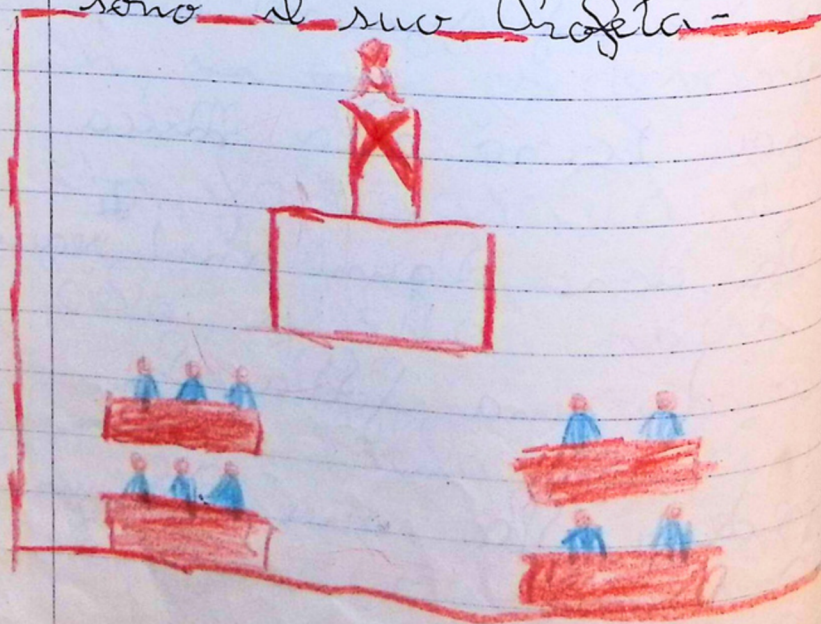 sono il suo Profeta-